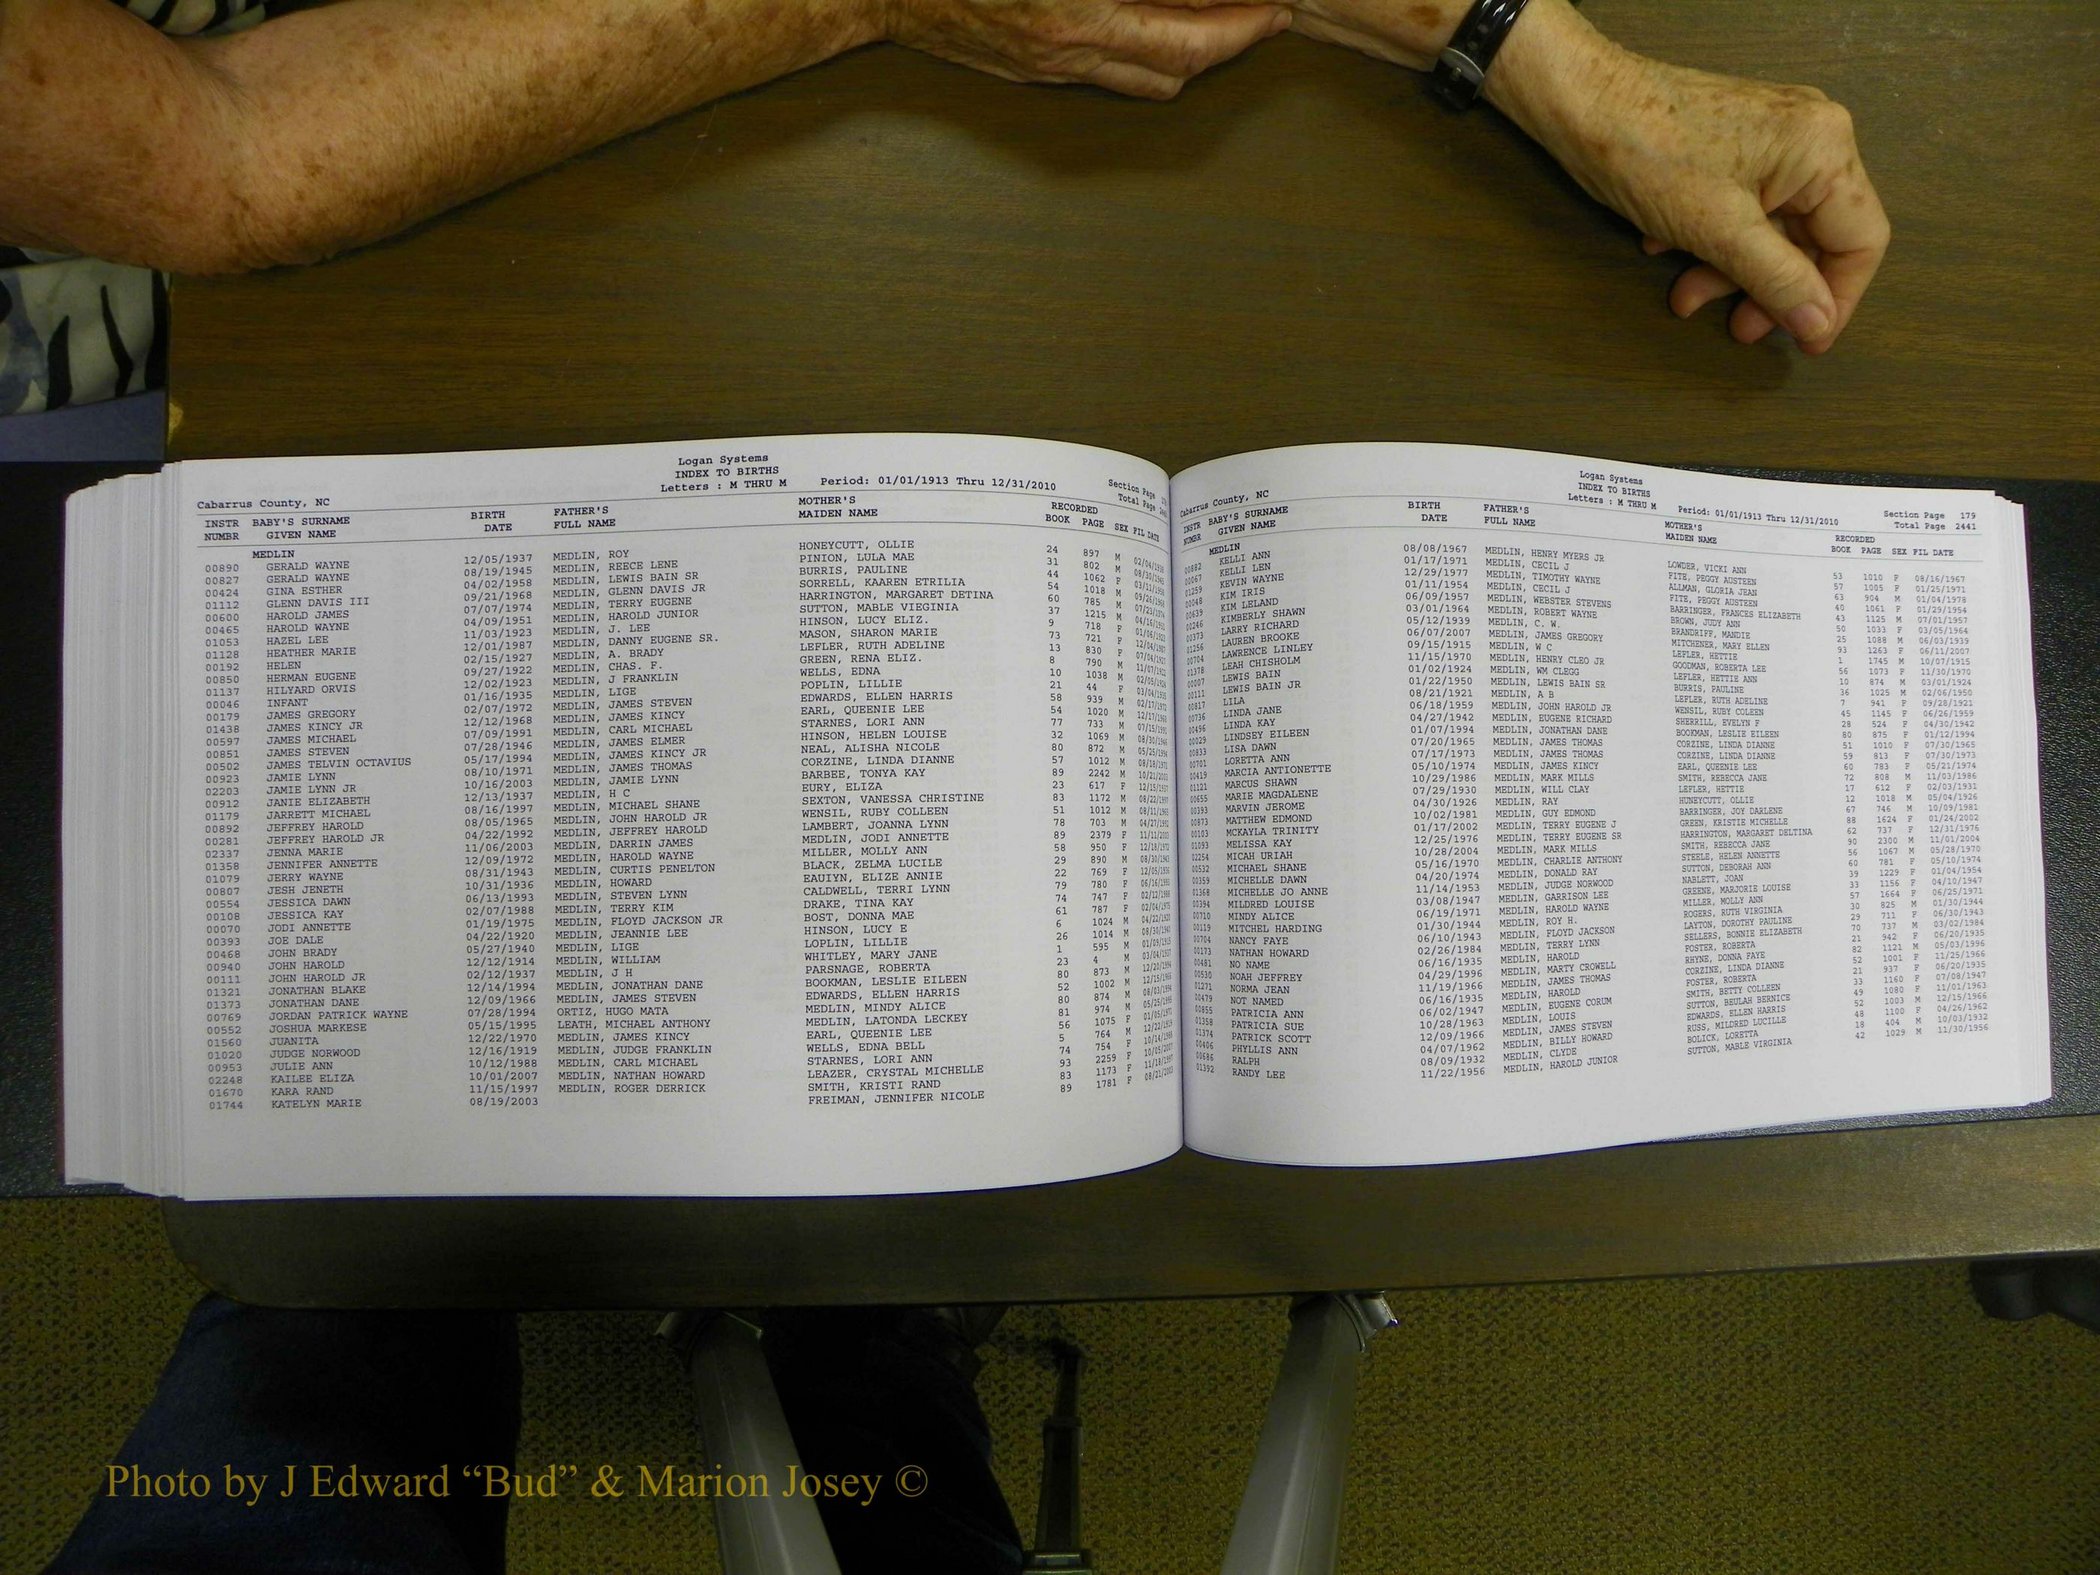 Logan Systems
INDEX TO BIRTHS
Letters : M THRU M
Period: 01/01/1913 Thru 12/31/2010
Section Page
Total Page
Cabarrus County, NC
INSTR
NUMBR
00890
00827
00424
01112
00600
00465
01053
01128
00192
00850
01137
00046
00179
01438
00597
00851
00502
00923
02203
00912
01179
00892
00281
02337
01358
01079
00807
00554
00108
00070
00393
00468
00940
00111
01321
01373
00769
00552
01560
01020
00953
02248
01670
01744
BABY'S SURNAME
GIVEN NAME
MEDLIN
GERALD WAYNE
GERALD WAYNE
GINA ESTHER
GLENN DAVIS III
HAROLD JAMES
HAROLD WAYNE
HAZEL LEE
HEATHER MARIE
HELEN
HERMAN EUGENE
HILYARD ORVIS
INFANT
JAMES GREGORY
JAMES KINCY JR
JAMES MICHAEL
JAMES STEVEN
JAMES TELVIN OCTAVIUS
JAMIE LYNN
JAMIE LYNN JR
JANIE ELIZABETH
JARRETT MICHAEL
JEFFREY HAROLD
JEFFREY HAROLD JR
JENNA MARIE
JENNIFER ANNETTE
JERRY WAYNE
JESH JENETH
JESSICA DAWN
JESSICA KAY
JODI ANNETTE
JOE DALE
JOHN BRADY
JOHN HAROLD
JOHN HAROLD JR
JONATHAN BLAKE
JONATHAN DANE
JORDAN PATRICK WAYNE
JOSHUA MARKESE
JUANITA
JUDGE NORWOOD
JULIE ANN
KAILEE ELIZA
KARA RAND
KATELYN MARIE
BIRTH
DATE
12/05/1937
08/19/1945
04/02/1958
09/21/1968
07/07/1974
04/09/1951
11/03/1923
12/01/1987
02/15/1927
09/27/1922
12/02/1923
01/16/1935
02/07/1972
12/12/1968
07/09/1991
07/28/1946
05/17/1994
08/10/1971
10/16/2003
12/13/1937
08/16/1997
08/05/1965
04/22/1992
11/06/2003
12/09/1972
08/31/1943
10/31/1936
06/13/1993
02/07/1988
01/19/1975
04/22/1920
05/27/1940
12/12/1914
02/12/1937
12/14/1994
12/09/1966
07/28/1994
05/15/1995
12/22/1970
12/16/1919
10/12/1988
10/01/2007
11/15/1997
08/19/2003
FATHER'S
FULL NAME
MEDLIN, ROY
MEDLIN, REECE LENE
MEDLIN, LEWIS BAIN SR
MEDLIN, GLENN DAVIS JR
MEDLIN, TERRY EUGENE
MEDLIN, HAROLD JUNIOR
MEDLIN, J. LEE
MEDLIN, DANNY EUGENE SR.
MEDLIN, A. BRADY
MEDLIN, CHAS. F.
MEDLIN, J FRANKLIN
MEDLIN, LIGE
MEDLIN, JAMES STEVEN
MEDLIN, JAMES KINCY
MEDLIN, CARL MICHAEL
MEDLIN, JAMES ELMER
MEDLIN, JAMES KINCY JR
MEDLIN, JAMES THOMAS
MEDLIN, JAMIE LYNN
MEDLIN, H C
MEDLIN, MICHAEL SHANE
MEDLIN, JOHN HAROLD JR
MEDLIN, JEFFREY HAROLD
MEDLIN, DARRIN JAMES
MEDLIN, HAROLD WAYNE
MEDLIN, CURTIS PENELTON
MEDLIN, HOWARD
MEDLIN, STEVEN LYNN
MEDLIN, TERRY KIM
MEDLIN, FLOYD JACKSON JR
MEDLIN, JEANNIE LEE
MEDLIN, LIGE
MEDLIN, WILLIAM
MEDLIN, J H
MEDLIN, JONATHAN DANE
MEDLIN, JAMES STEVEN
ORTIZ, HUGO MATA
LEATH, MICHAEL ANTHONY
MEDLIN, JAMES KINCY
MEDLIN, JUDGE FRANKLIN
MEDLIN, CARL MICHAEL
MEDLIN, NATHAN HOWARD
MEDLIN, ROGER DERRICK
MOTHER'S
MAIDEN NAME
HONEYCUTT, OLLIE
PINION, LULA MAE
BURRIS, PAULINE
SORRELL, KAAREN ETRILIA
HARRINGTON, MARGARET DETINA
SUTTON, MABLE VIEGINIA
HINSON, LUCY ELIZ.
MASON, SHARON MARIE
LEFLER, RUTH ADELINE
GREEN, RENA ELIZ.
WELLS, EDNA
POPLIN, LILLIE
EDWARDS, ELLEN HARRIS
EARL, QUEENIE LEE
STARNES, LORI ANN
HINSON, HELEN LOUISE
NEAL, ALISHA NICOLE
CORZINE, LINDA DIANNE
BARBEE, TONYA KAY
EURY, ELIZA
SEXTON, VANESSA CHRISTINE
WENSIL, RUBY COLLEEN
LAMBERT, JOANNA LYNN
MEDLIN, JODI ANNETTE
MILLER, MOLLY ANN
BLACK, ZELMA LUCILE
EAUIYN, ELIZE ANNIE
CALDWELL, TERRI LYNN
DRAKE, TINA KAY
BOST, DONNA MAE
HINSON, LUCY E
LOPLIN, LILLIE
WHITLEY, MARY JANE
PARSNAGE, ROBERTA
BOOKMAN, LESLIE EILEEN
EDWARDS, ELLEN HARRIS
MEDLIN, MINDY ALICE
MEDLIN, LATONDA LECKEY
EARL, QUEENIE LEE
WELLS, EDNA BELL
STARNES, LORI ANN
LEAZER, CRYSTAL MICHELLE
SMITH, KRISTI RAND
FREIMAN, JENNIFER NICOLE
RECORDED
BOOK PAGE SEX FIL DATE
24 897 M
31 802 M
44 1062 F
54 1018 M
60 785 M
37 1215 M
9 718 F
73 721 F
13 830 F
8 790 M
10 1038 M
21 44 F
58 939 M
54 1020 M
77 733 M
32 1069 M
80 872 M
57 1012 M
89 2242 M
23 617 F
83 1172 M
51 1012 M
78 703 M
89 2379 F
58 950 F
29 890 M
22 769 F
79 780 F
74 747 F
61 787 F
6 1024 M
26 1014 M
1 595 M
23 4 M
80 873 M
52 1002 M
80 874 M
81 974 M
56 1075 F
5 764 M
74 754 F
93 2259 F
83 1173 F
89 1781 F
Logan Systems
INDEX TO BIRTHS
Letters : M THRU M
Period: 01/01/1913 Thru 12/31/2010
Section Page 179
Total Page 2441
Cabarrus County, NC
INSTR
NUMBR
00882
00067
01259
00048
00639
00246
00373
01256
00704
01378
00007
00111
00817
00736
00496
00029
00833
00701
00419
01121
00655
00393
00873
00103
01093
02254
00532
00359
01368
00394
00710
00119
00704
00173
00481
00530
01271
00479
00855
01358
01374
00406
00686
01392
BABY'S SURNAME
GIVEN NAME
MEDLIN
KELLI ANN
KELLI LEN
KEVIN WAYNE
KIM IRIS
KIM LELAND
KIMBERLY SHAWN
LARRY RICHARD
LAUREN BROOKE
LAWRENCE LINLEY
LEAH CHISHOLM
LEWIS BAIN
LEWIS BAIN JR
LILA
LINDA JANE
LINDA KAY
LINDSEY EILEEN
LISA DAWN
LORETTA ANN
MARCIA ANTIONETTE
MARCUS SHAWN
MARIE MAGDALENE
MARVIN JEROME
MATTHEW EDMOND
MCKAYLA TRINITY
MELISSA KAY
MICAH URIAH
MICHAEL SHANE
MICHELLE DAWN
MICHELLE JO ANNE
MILDRED LOUISE
MINDY ALICE
MITCHEL HARDING
NANCY FAYE
NATHAN HOWARD
NO NAME
NOAH JEFFREY
NORMA JEAN
NOT NAMED
PATRICIA ANN
PATRICIA SUE
PATRICK SCOTT
PHYLLIS ANN
RALPH
RANDY LEE
BIRTH
DATE
08/08/1967
01/17/1971
12/29/1977
01/11/1954
06/09/1957
03/01/1964
05/12/1939
06/07/2007
09/15/1915
11/15/1970
01/02/1924
01/22/1950
08/21/1921
06/18/1959
04/27/1942
01/07/1994
07/20/1965
07/17/1973
05/10/1974
10/29/1986
07/29/1930
04/30/1926
10/02/1981
01/17/2002
12/25/1976
10/28/2004
05/16/1970
04/20/1974
11/14/1953
03/08/1947
06/19/1971
01/30/1944
06/10/1943
02/26/1984
06/16/1935
04/29/1996
11/19/1966
06/16/1935
06/02/1947
10/28/1963
12/09/1966
04/07/1962
08/09/1932
11/22/1956
FATHER'S
FULL NAME
MEDLIN, HENRY MYERS JR
MEDLIN, CECIL J
MEDLIN, TIMOTHY WAYNE
MEDLIN, CECIL J
MEDLIN, WEBSTER STEVENS
MEDLIN, ROBERT WAYNE
MEDLIN, C. W.
MEDLIN, JAMES GREGORY
MEDLIN, W C
MEDLIN, HENRY CLEO JR
MEDLIN, WM CLEGG
MEDLIN, LEWIS BAIN SR
MEDLIN, A B
MEDLIN, JOHN HAROLD JR
MEDLIN, EUGENE RICHARD
MEDLIN, JONATHAN DANE
MEDLIN, JAMES THOMAS
MEDLIN, JAMES THOMAS
MEDLIN, JAMES KINCY
MEDLIN, MARK MILLS
MEDLIN, WILL CLAY
MEDLIN, RAY
MEDLIN, GUY EDMOND
MEDLIN, TERRY EUGENE J
MEDLIN, TERRY EUGENE SR
MEDLIN, MARK MILLS
MEDLIN, CHARLIE ANTHONY
MEDLIN, DONALD RAY
MEDLIN, JUDGE NORWOOD
MEDLIN, GARRISON LEE
MEDLIN, HAROLD WAYNE
MEDLIN, ROY H.
MEDLIN, FLOYD JACKSON
MEDLIN, TERRY LYNN
MEDLIN, HAROLD
MEDLIN, MARTY CROWELL
MEDLIN, JAMES THOMAS
MEDLIN, HAROLD
MEDLIN, EUGENE CORUM
MEDLIN, LOUIS
MEDLIN, JAMES STEVEN
MEDLIN, BILLY HOWARD
MEDLIN, CLYDE
MEDLIN, HAROLD JUNIOR
MOTHER'S
MAIDEN NAME
LOWDER, VICKI ANN
FITE, PEGGY AUSTEEN
ALLMAN, GLORIA JEAN
FITE, PEGGY AUSTEEN
BARRINGER, FRANCES ELIZABETH
BROWN, JUDY ANN
BRANDRIFF, MANDIE
MITCHENER, MARY ELLEN
LEFLER, HETTIE
GOODMAN, ROBERTA LEE
LEFLER, HETTIE ANN
BURRIS, PAULINE
LEFLER, RUTH ADELINE
WENSIL, RUBY COLEEN
SHERRILL, EVELYN F
BOOKMAN, LESLIE EILEEN
CORZINE, LINDA DIANNE
CORZINE, LINDA DIANNE
EARL, QUEENIE LEE
SMITH, REBECCA JANE
LEFLER, HETTIE
HUNEYCUTT, OLLIE
BARRINGER, JOY DARLENE
GREEN, KRISTIE MICHELLE
HARRINGTON, MARGARET DELTINA
SMITH, REBECCA JANE
STEELE, HELEN ANNETTE
SUTTON, DEBORAH ANN
NABLETT, JOAN
GREENE, MARJORIE LOUISE
MILLER, MOLLY ANN
ROGERS, RUTH VIRGINIA
LAYTON, DOROTHY PAULINE
SELLERS, BONNIE ELIZABETH
FOSTER, ROBERTA
RHYNE, DONNA FAYE
CORZINE, LINDA DIANNE
FOSTER, ROBERTA
SMITH, BETTY COLLEEN
SUTTON, BEULAH BERNICE
EDWARDS, ELLEN HARRIS
RUSS, MILDRED LUCILLE
BOLICK, LORETTA
SUTTON, MABLE VIRGINIA
RECORDED
BOOK PAGE SEX FIL DATE
53 1010 F 08/16/1967
57 1005 F 01/25/1971
63 904 M 01/04/1978
40 1061 F 01/29/1954
43 1125 M 07/01/1957
50 1033 F 03/05/1964
25 1088 M 06/03/1939
93 1263 F 06/11/2007
1 1745 M 10/07/1915
56 1073 F 11/30/1970
10 874 M 03/01/1924
36 1025 M 02/06/1950
7 941 F 09/28/1921
45 1145 F 06/26/1959
28 524 F 04/30/1942
80 875 F 01/12/1994
51 1010 F 07/30/1965
59 813 F 07/30/1973
60 783 F 05/21/1974
72 808 M 11/03/1986
17 612 F 02/03/1931
12 1018 M 05/04/1926
67 746 M 10/09/1981
88 1624 F 01/24/2002
62 737 F 12/31/1976
90 2300 M 11/01/2004
56 1067 M 05/28/1970
60 781 F 05/10/1974
39 1229 F 01/04/1954
33 1156 F 04/10/1947
57 1664 F 06/25/1971
30 825 M 01/30/1944
29 711 F 06/30/1943
70 737 M 03/02/1984
21 942 F 06/20/1935
82 1121 M 05/03/1996
52 1001 F 11/25/1966
21 937 F 06/20/1935
33 1160 F 07/08/1947
49 1080 F 11/01/1963
52 1003 M 12/15/1966
48 1100 F 04/26/1962
18 404 M 10/03/1932
42 1029 M 11/30/1956
Photo by J Edward “Bud” & Marion Josey ©